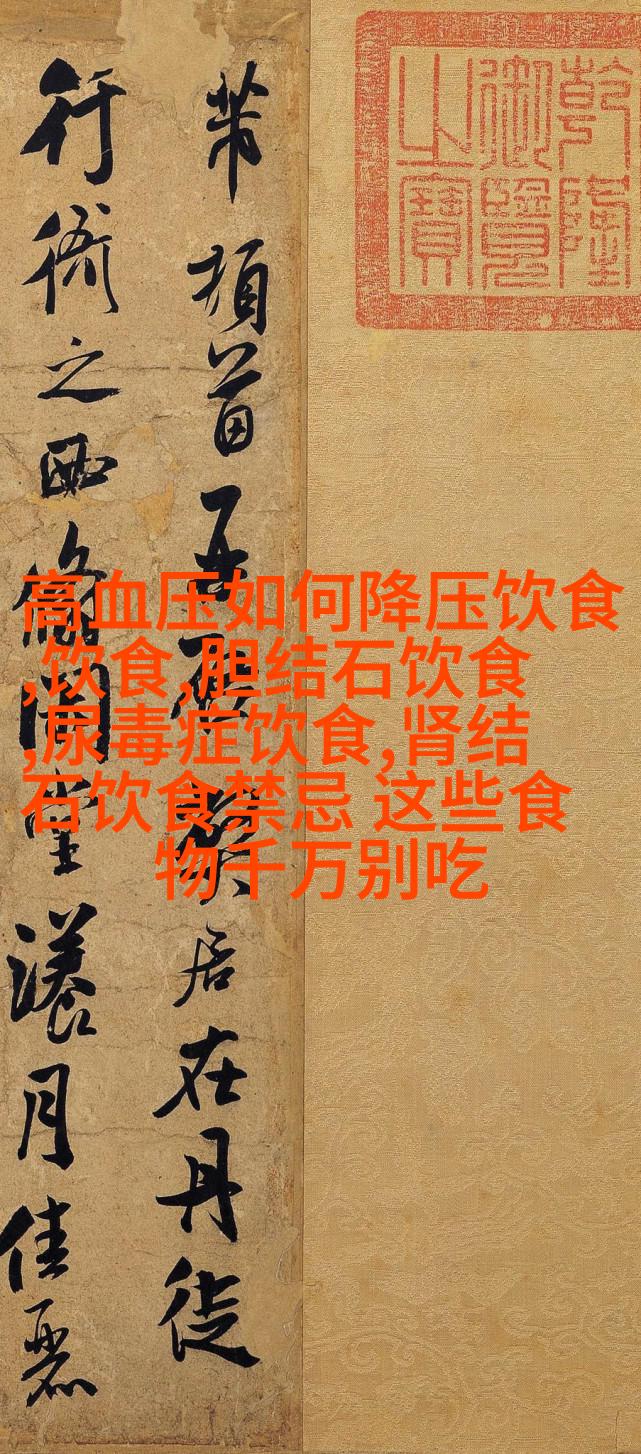 乾隆
御覽
之寶
芾頓首再啓弊居在丹徒
行衙之西翛閒堂漾月佳麗
高血压如何降压饮食
,饮食,胆结石饮食
,尿毒症饮食,肾结
石饮食禁忌 这些食
物千万别吃